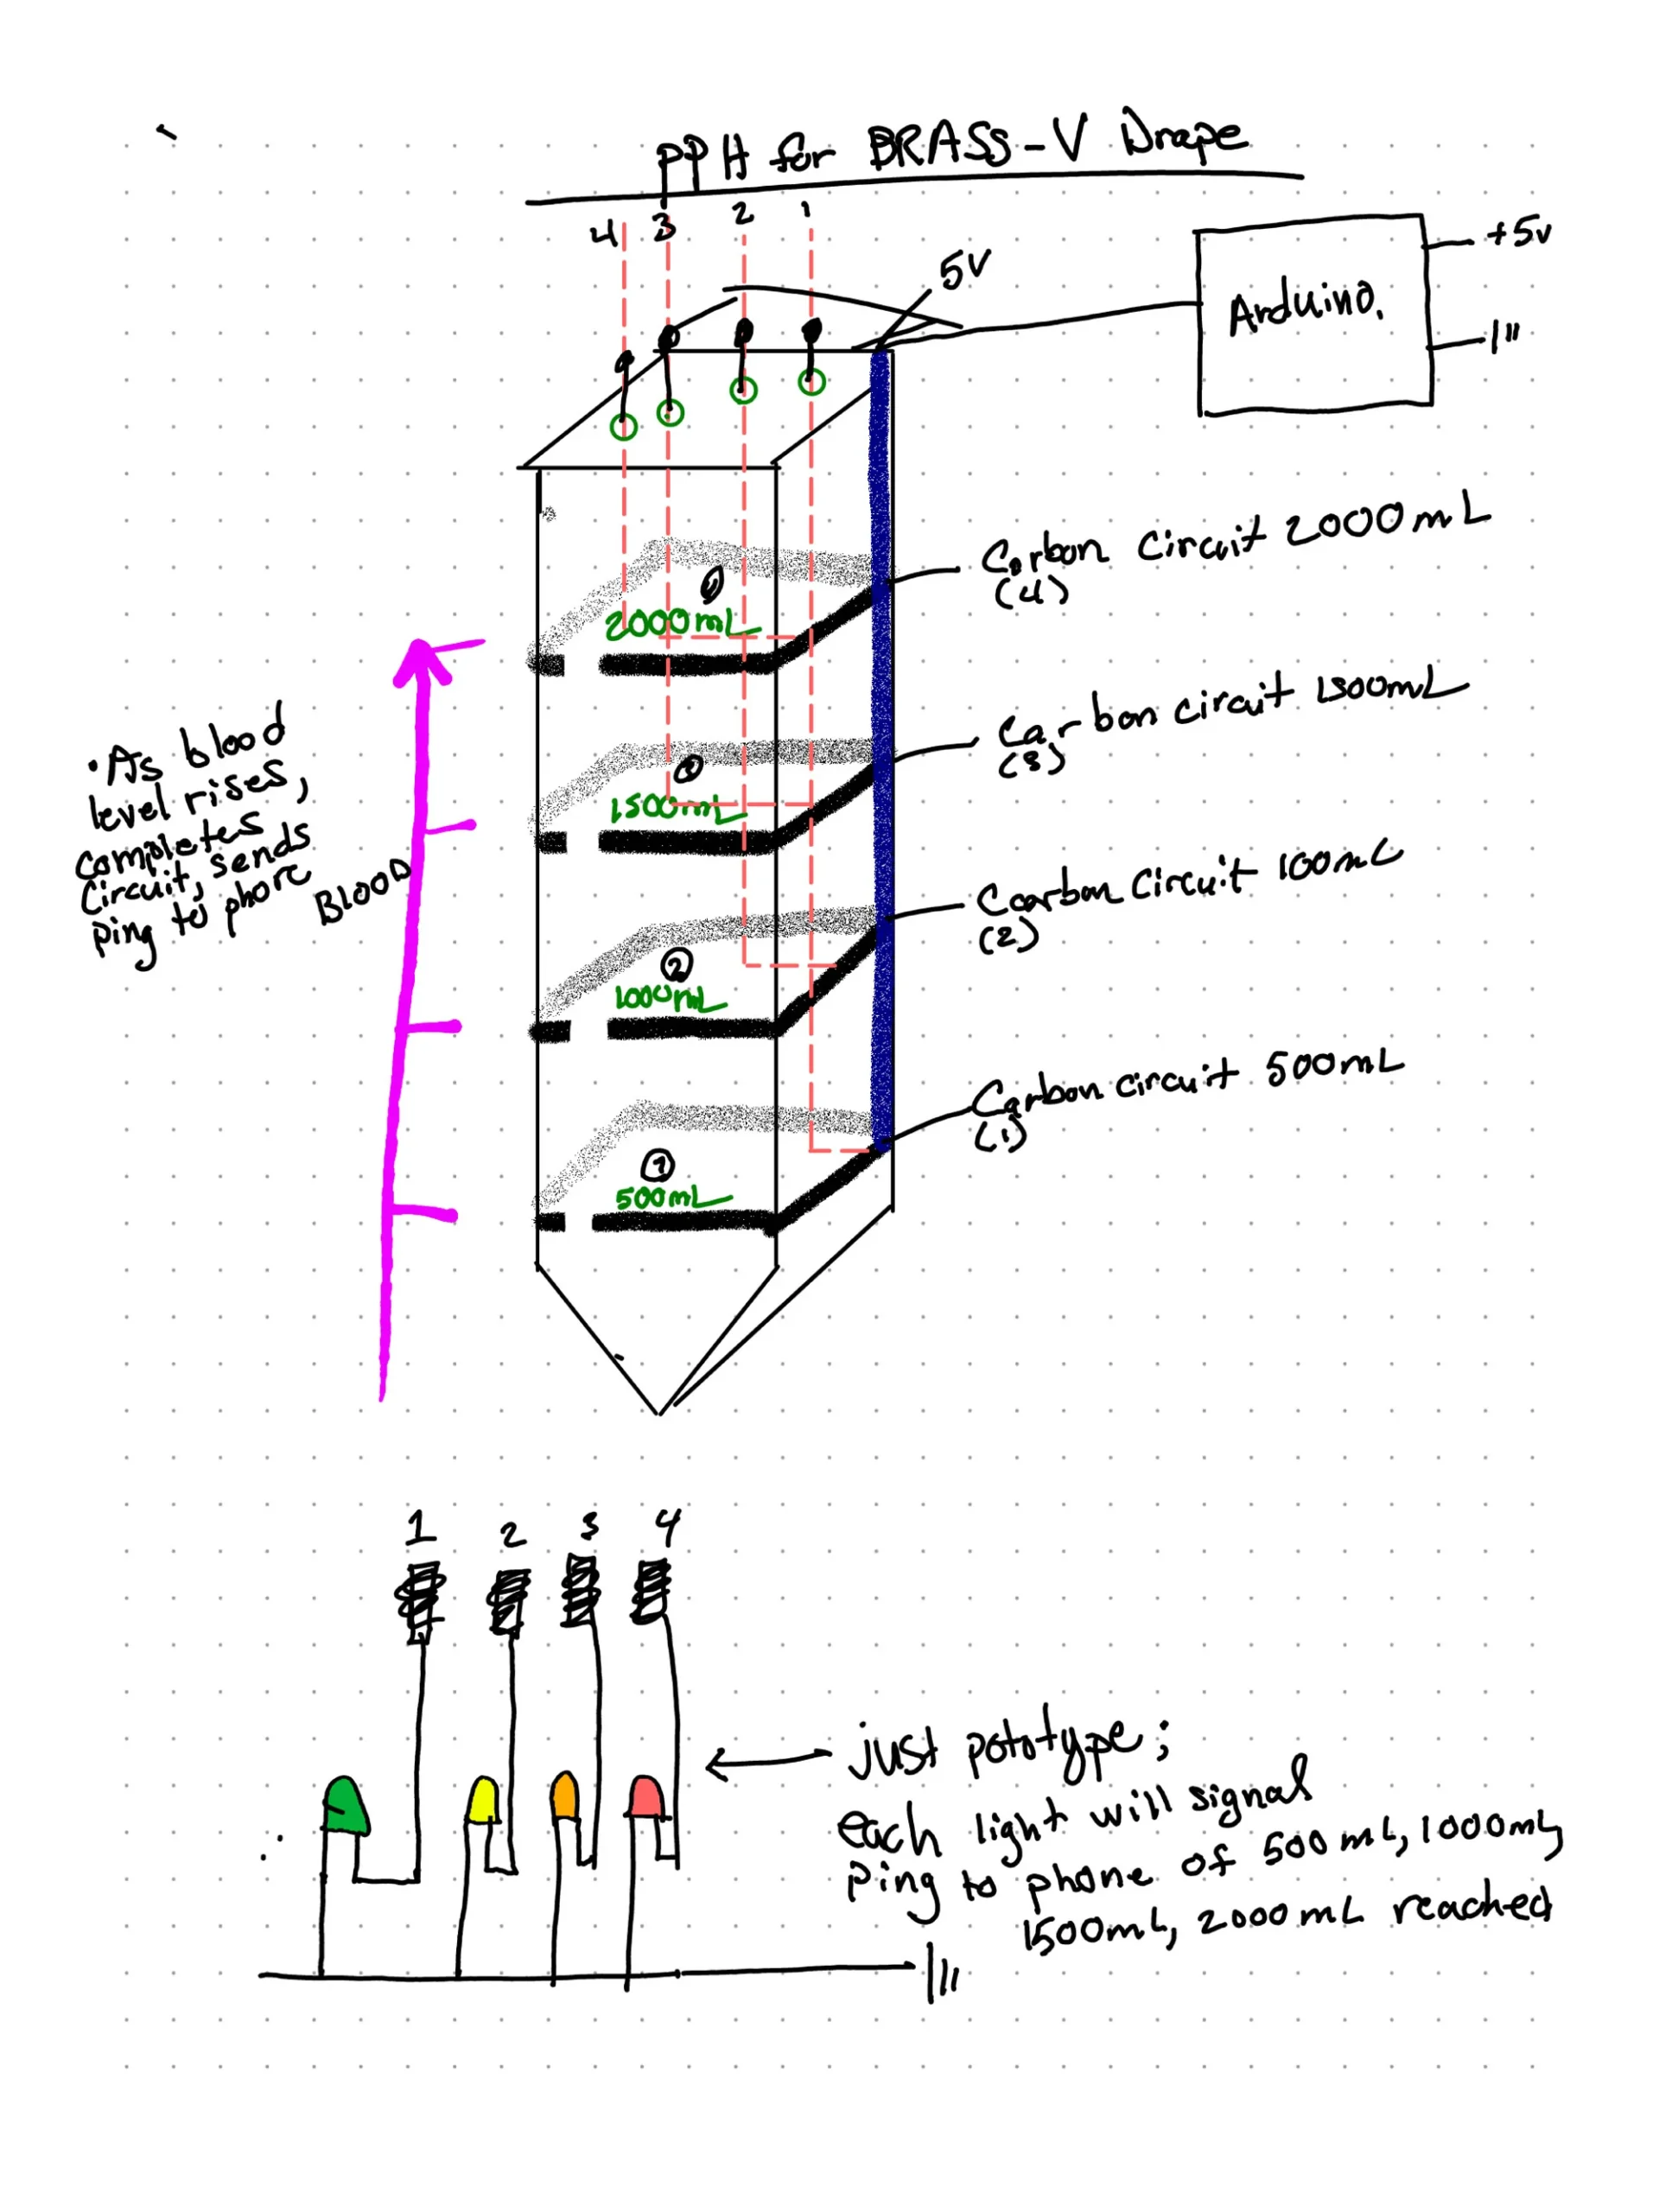 PPH for BRASS-V Drape
4 3 2 1
5V
+5v
Arduino.
Carbon Circuit 2000mL
(4)
2000mL
Carbon circuit 1500mL
(3)
3
1500mL
• As blood
level rises,
completes
circuit, sends
ping to phone
BLOOD
Coarbon Circuit 100mL
(2)
2
1000mL
Carbon circuit 500mL
(1)
1
500mL
1 2 3 4
just pototype;
each light will signal
Ping to phone of 500mL, 1000mL,
1500mL, 2000mL reached